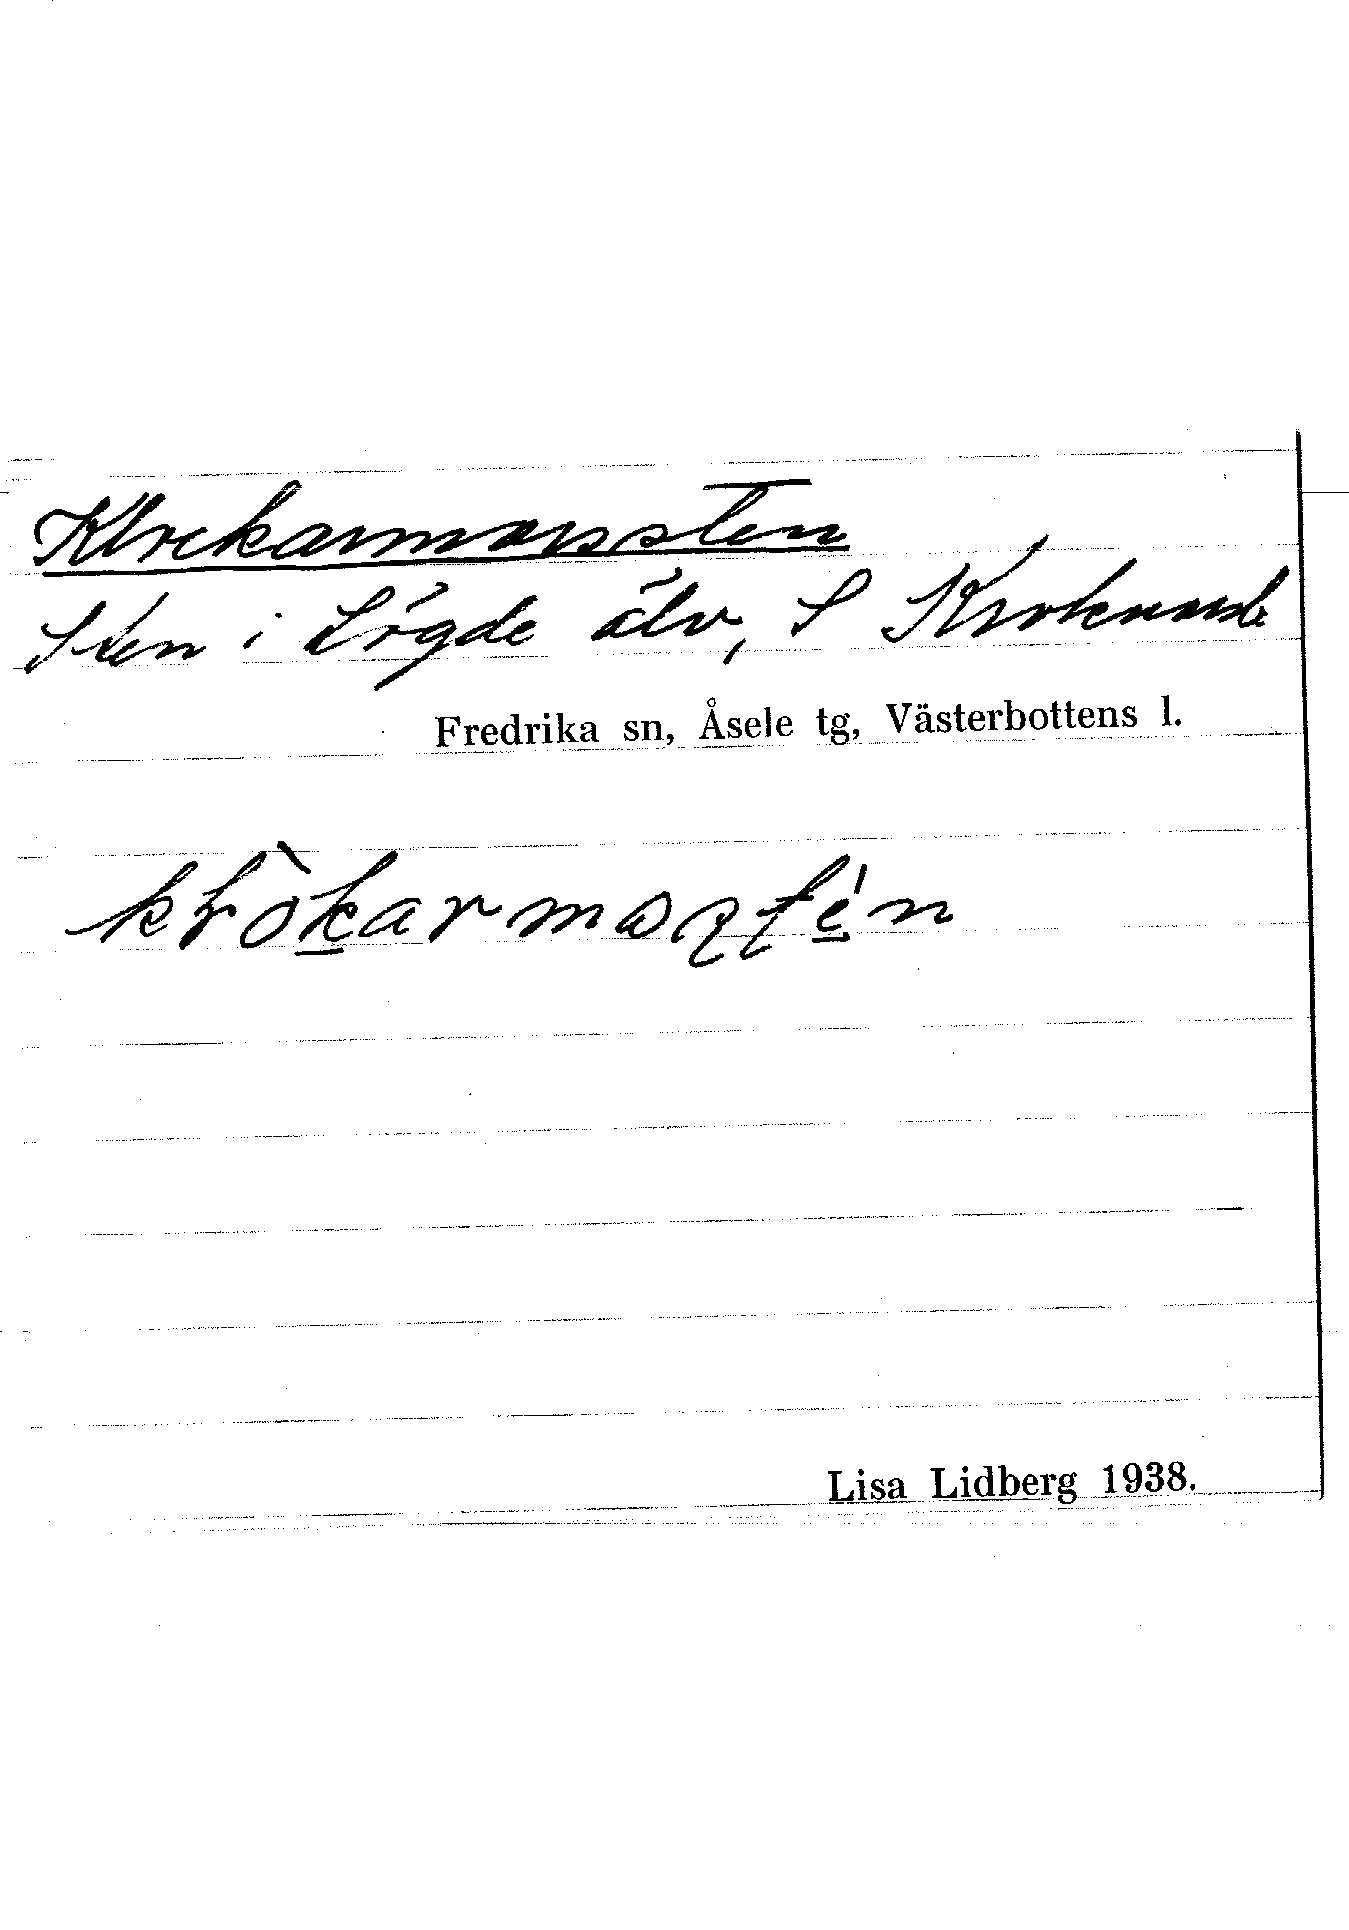 Krokarmonsten
Sten i Lögde älv, S Kroknäs
Fredrika sn, Åsele tg, Västerbottens l.
Lisa Lidberg 1938.